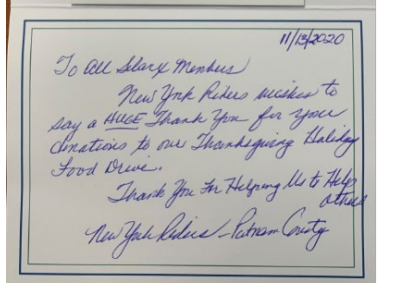 11/13/2020
To All Members
New York Riders wishes to
say a HUGE Thank You for your
donations to our Thanksgiving Holiday
Food Drive.
Thank You For Helping Us to Help
others
New York Riders - Putnam County